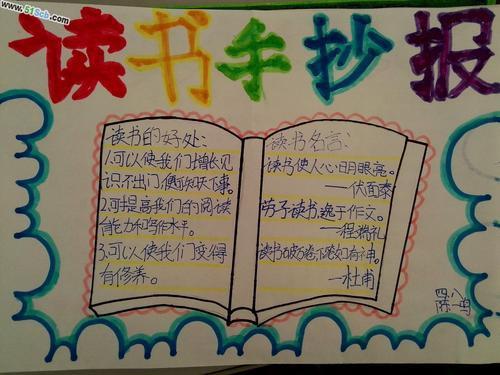 www.51Scb.com
读书手抄报
读书的好处:
1.可以使我们增长见
识,不出门便可知天下事。
2.可提高我们的阅读
能力和写作水平。
3.可以使我们变得
有修养。
读书名言:
读书使人心日月眼亮。
——伏面泰
劳于读书,逸于作文。
——程端礼
读书破万卷,下笔如有神。
——杜甫
四、八